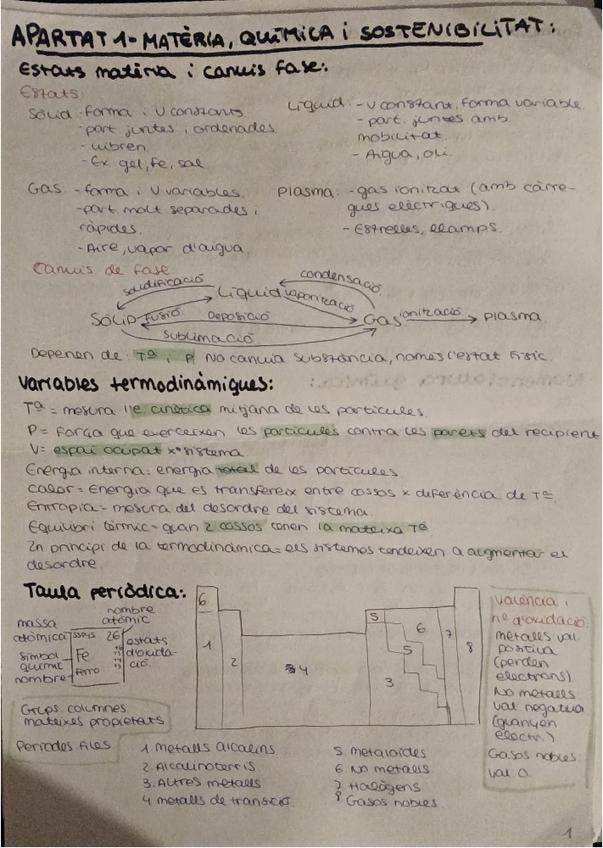 APARTAT 1- MATÈRIA, QUÍMICA i SOSTENIBILITAT:
Estats matèria i canvis fase:
Estats:
Sòlid -forma i V constants
-part juntes i ordenades
-vibren
-Ex. gel, fe, sal
Líquid: -V constant, forma variable
-part. juntes amb
mobilitat
-Aigua, oli.
Gas: -forma i V variables.
-part molt separades i
ràpides.
-Aire, vapor d'aigua
Plasma: -gas ionitzat (amb càrre-
gues elèctriques).
-Estrelles, llamps.
Canvis de fase
condensació
solidificació
Líquid vaporització
Sòlid fusió Deposició Gas ionització Plasma
Sublimació
Depenen de: Tª i P No canvia substància, només l'estat físic.
Variables termodinàmiques:
Tª = mesura l'e cinètica mitjana de les partícules
P = Força que exerceixen les partícules contra les parets del recipient
V = espai ocupat x sistema
Energia interna: energia total de les partícules
Calor = Energia que es transfereix entre cossos x diferència de Tª
Entropia = mesura del desordre del sistema
Equilibri tèrmic = quan 2 cossos tenen la mateixa Tª
2n principi de la termodinàmica = els sistemes tendeixen a augmentar el
desordre
Taula periòdica:
nombre
atòmic
massa
atòmica
26
símbol
químic
Fe
estats
d'oxida-
ció
nombre
Ferro
Grups columnes
mateixes propietats
Períodes files
6
1
2
4
5
5
3
6
7
8
1 metalls alcalins
2. Alcalinoterris
3. Altres metalls
4 metalls de transició
5. metaloides
6. No metalls
7 Halògens
8 Gasos nobles
València i
nº d'oxidació
metalls val
positiva
(perden
electrons)
No metalls
val negativa
(guanyen
electr.)
Gasos nobles
val 0
1